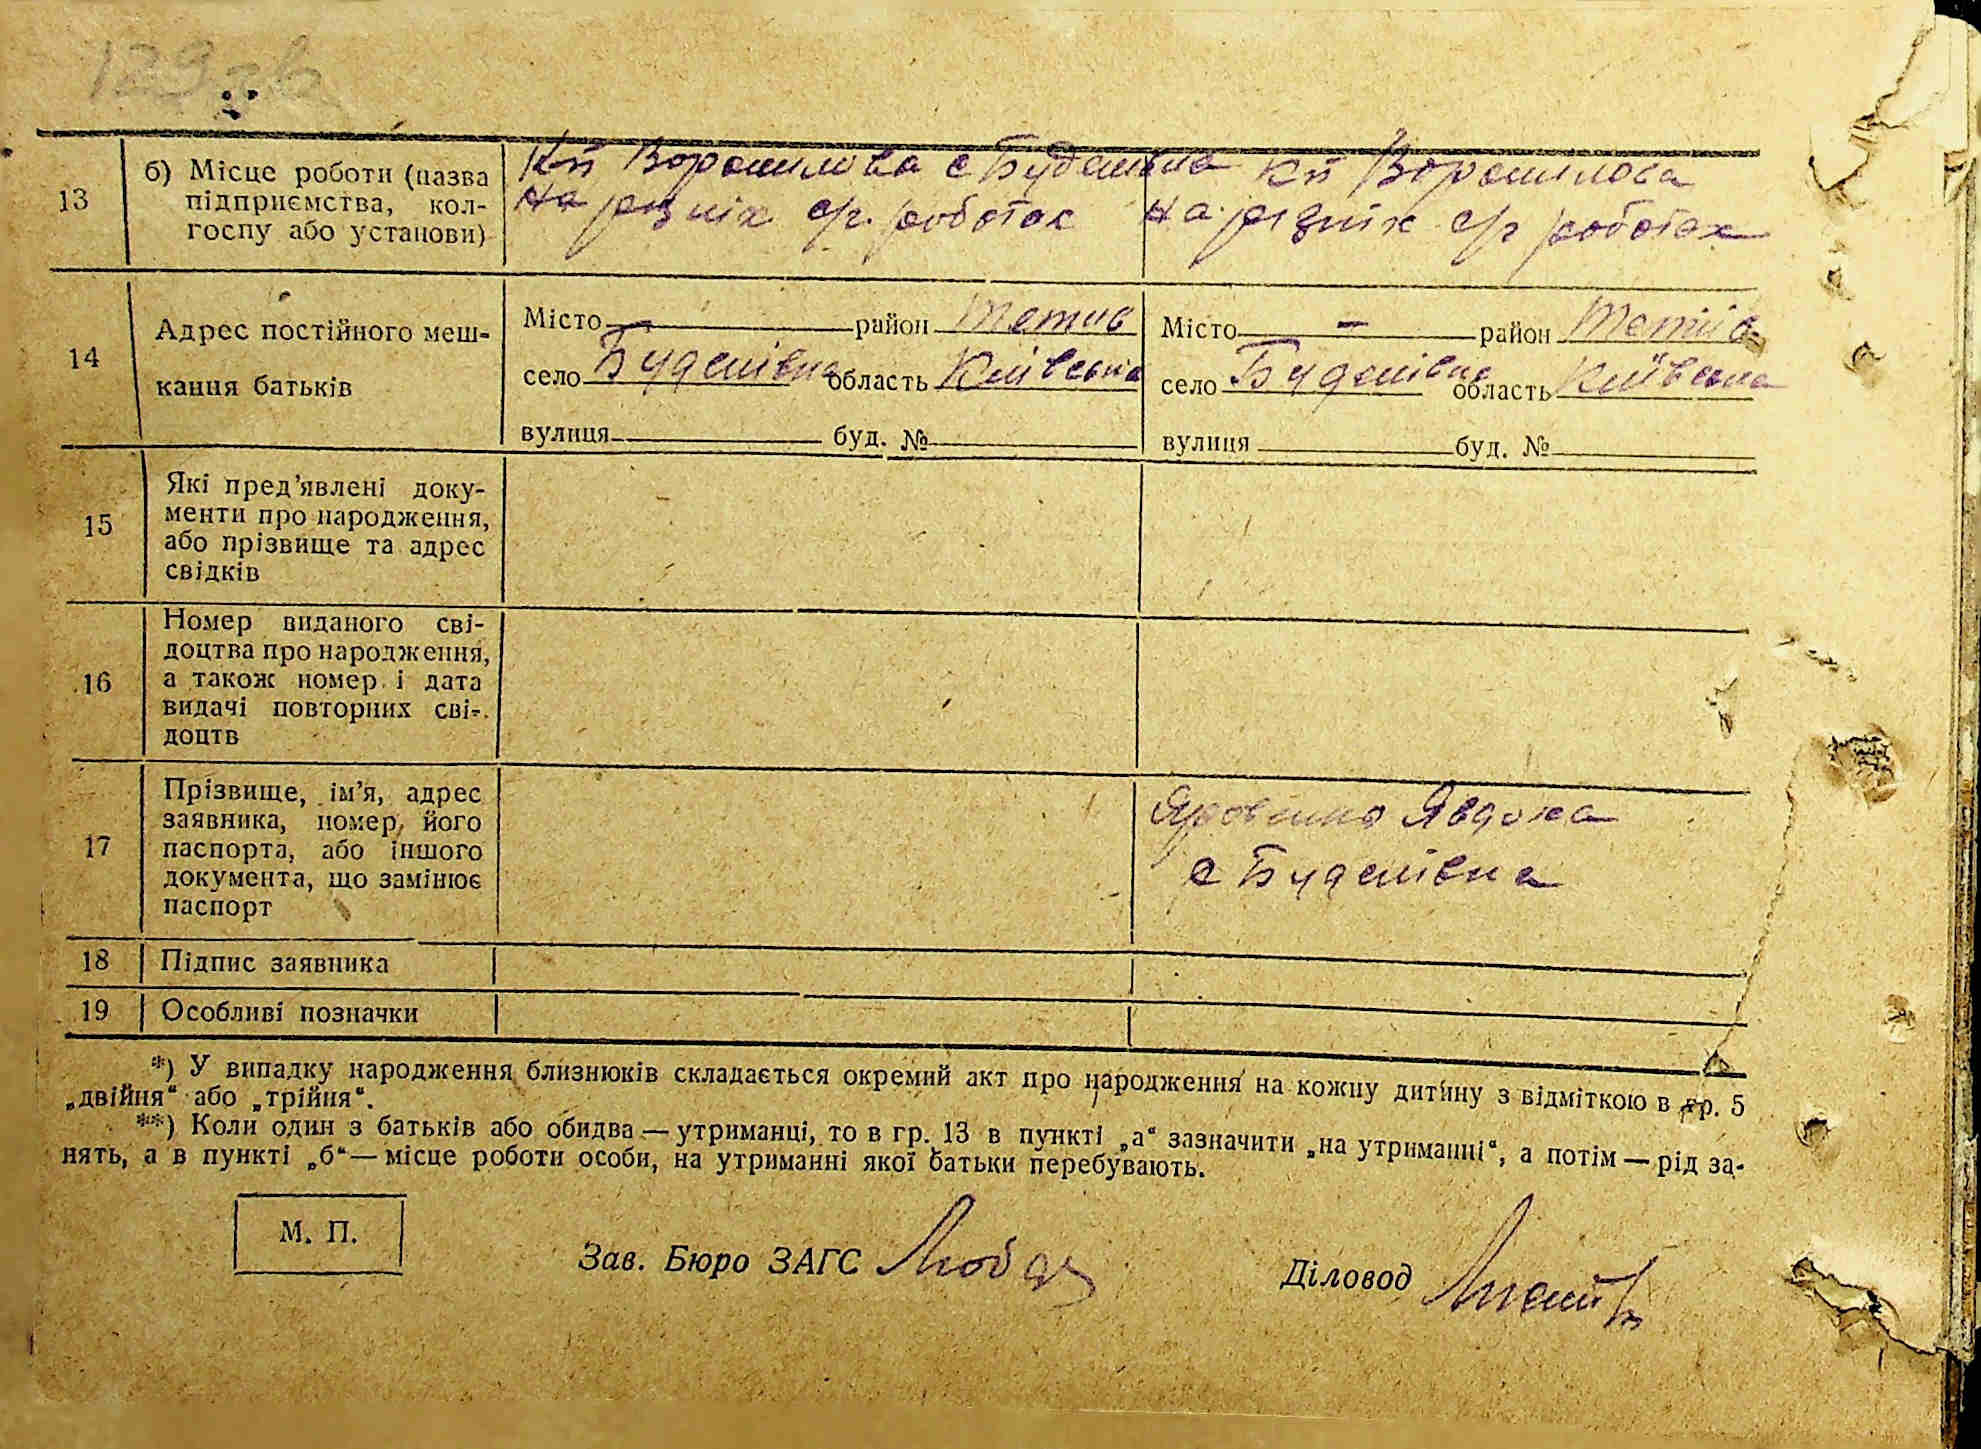 129 зв
13 б) Місце роботи (назва підприємства, колгоспу або установи)
Кп Ворошилова с Буденівка
на різніх с/г. роботах
кп Ворошилова
на різніх с/г роботах
14 Адрес постійного мешкання батьків
Місто — район Тетиів
село Буденівка область Київська
вулиця буд. №
Місто — район Тетиїв
село Буденівка область Київська
вулиця буд. №
15 Які пред’явлені доку-
менти про народження,
або прізвище та адрес
свідків
16 Номер виданого сві-
доцтва про народження,
а також номер і дата
видачі повторних сві-
доцтв
17 Прізвище, ім’я, адрес
заявника, номер його
паспорта, або іншого
документа, що замінює
паспорт
Явдоха
с Буденівка
18 Підпис заявника
19 Особливі позначки
*) У випадку народження близнюків складається окремий акт про народження на кожну дитину з відміткою в гр. 5
„двійня“ або „трійня“.
**) Коли один з батьків або обидва — утриманці, то в гр. 13 в пункті „а“ зазначити „на утриманні“, а потім — рід за-
нять, а в пункті „б“ — місце роботи особи, на утриманні якої батьки перебувають.
М. П.
Зав. Бюро ЗАГС
Діловод